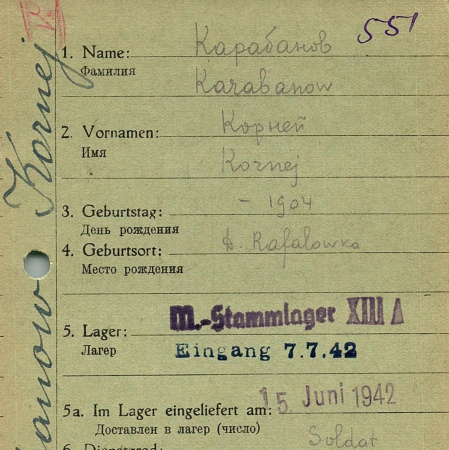 551
1. Name: Карабанов
Фамилия
Karabanow
2. Vornamen: Корней
Имя
Kornej
3. Geburtstag: - 1904
День рождения
4. Geburtsort: D. Rafalowka
Место рождения
5. Lager: M.-Stammlager XIII A
Лагер Eingang 7.7.42
5a. Im Lager eingeliefert am: 15. Juni 1942
Доставлен в лагер (число)
6. Dienstgrad: Soldat
anow Kornej